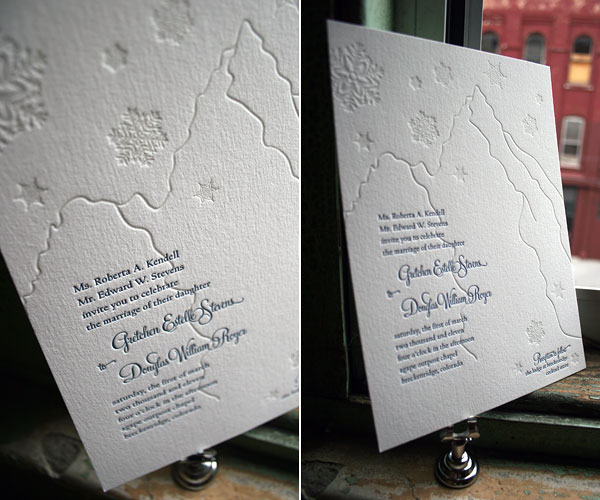 Ms. Roberta A. Kendell
Mr. Edward W. Stevens
invite you to celebrate
the marriage of their daughter
Gretchen Estelle Stevens
to
Douglas William Royer
saturday, the first of march
two thousand and eleven
four o'clock in the afternoon
agape outpost chapel
breckenridge, colorado
the
Ms. Roberta A. Kendell
Mr. Edward W. Stevens
invite you to celebrate
the marriage of their daughter
Gretchen Estelle Stevens
to
Douglas William Royer
saturday, the first of march
two thousand and eleven
four o'clock in the afternoon
agape outpost chapel
breckenridge, colorado
the lodge at breckenridge
cocktail attire